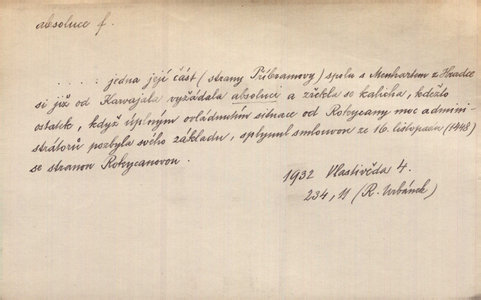 absoluce f.
. . . . : jedna její část (strany Příbramovy) spolu s Menhartem z Hradce
si již od Karvajala vyžádala absoluci a zřekla se kalicha, kdežto
ostatek, když úplným ovládnutím situace od Rokycany moc admini-
strátorů pozbyla svého základu, splynul smlouvou ze 16. listopadu (1448)
se stranou Rokycanovou.
1932 Vlastivěda 4.
234, 11 (R. Urbánek)